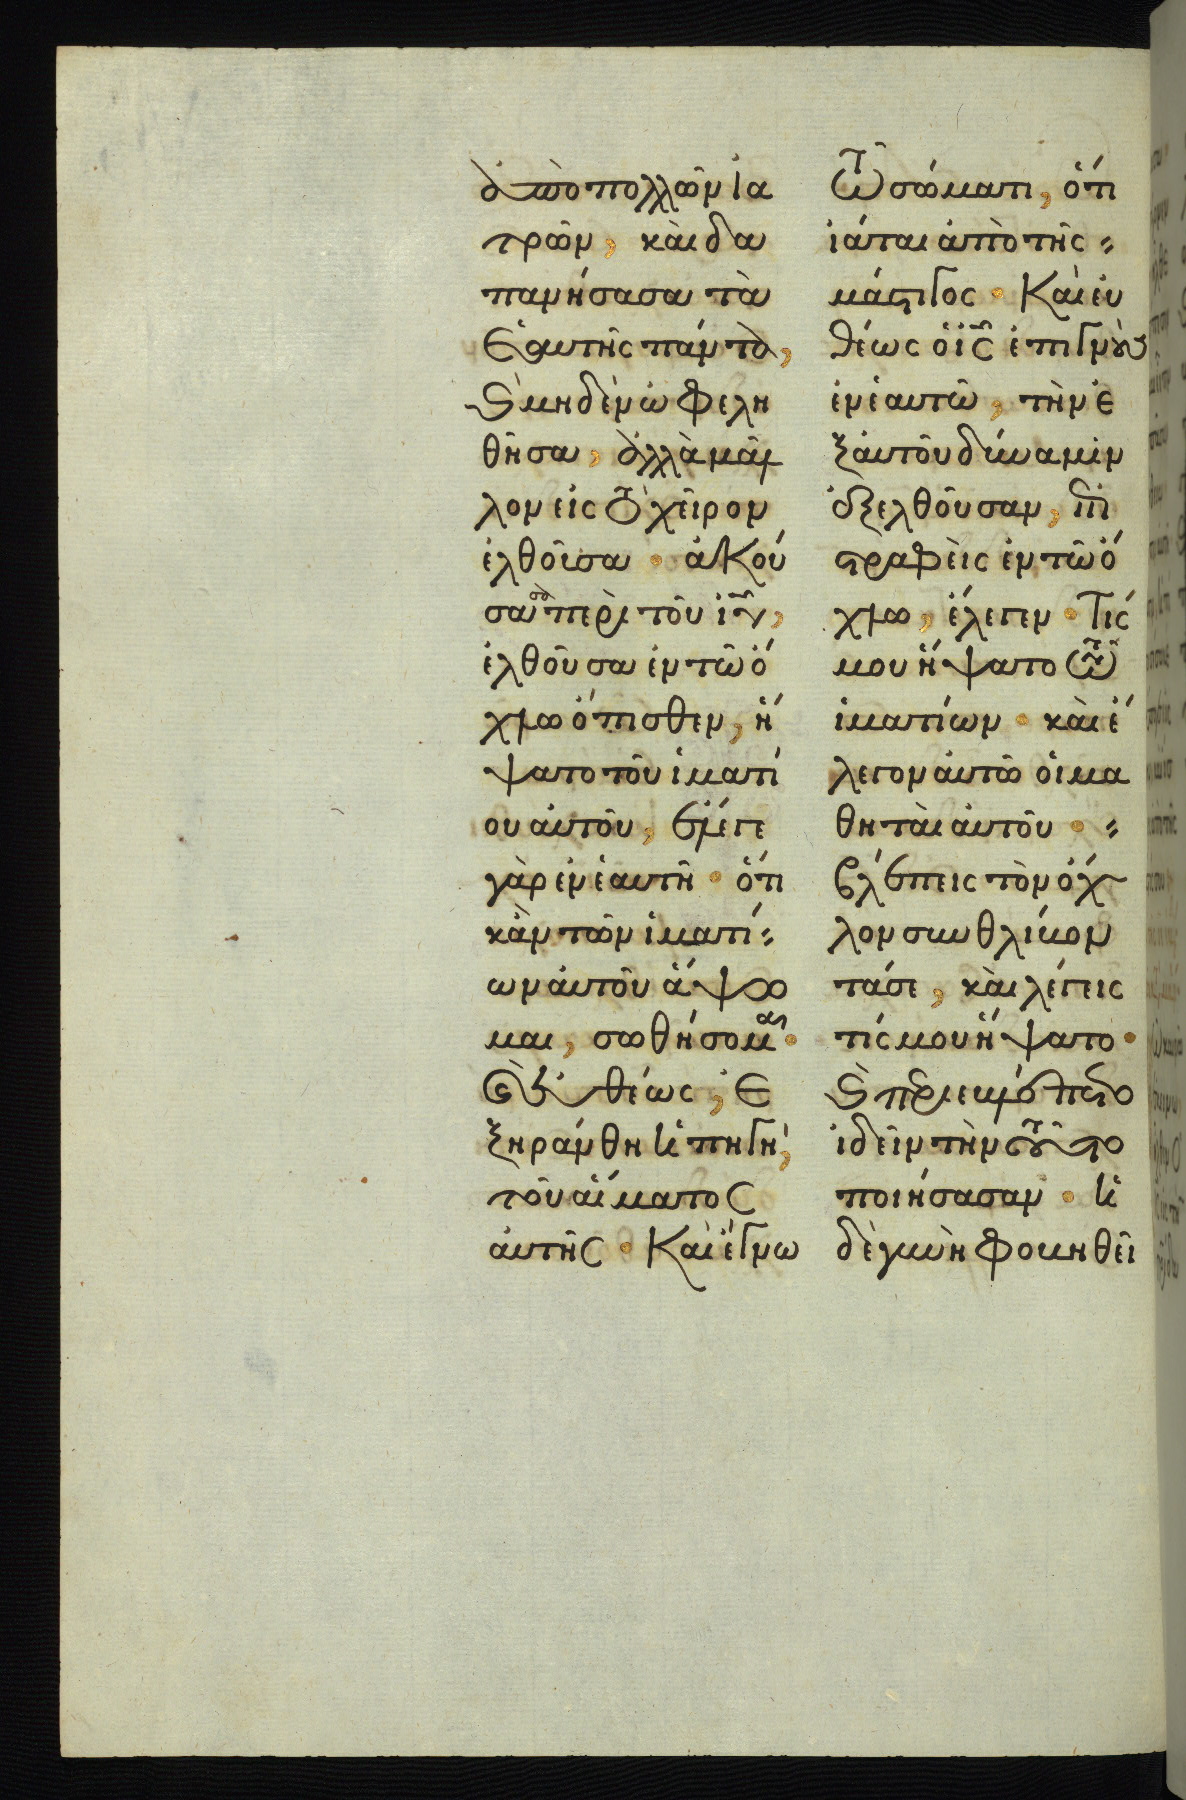 ὑπὸ πολλῶν ἰα
τρῶν, καὶ δα
πανήσασα τὰ
ἑαυτῆς πάντα,
ϗ μηδὲν ὠφελη
θεῖσα, ἀλλὰ μᾶλ
λον εἰς τὸ χεῖρον
ἐλθοῦσα · ἀκού
σασα περὶ τοῦ ἰῦ,
ἐλθοῦσα ἐν τῶ ὄ
χλω ὄπισθεν, ἥ
ψατο τοῦ ἱματί
ου αὐτοῦ, ἔλεγε
γὰρ ἐν ἑαυτῆ · ὅτι
κἂν τῶν ἱματί
ων αὐτοῦ ἅψω
μαι, σωθήσομαι ·
Εὐθέως, ἐ
ξηράνθη ἡ πηγὴ,
τοῦ αἵματος
αὐτῆς · Καὶ ἔγνω
τῶ σώματι, ὅτι
ἰάται ἀπὸ τῆς
μάστιγος · Καὶ εὐ
θέως ὁ ἰς ἐπιγνοὺς
ἐν ἑαυτῶ, τὴν ἐ
ξ αὐτοῦ δύναμιν
ἐξελθοῦσαν, ἐπι
στραφεὶς ἐν τῶ ὄ
χλω, ἔλεγεν · Τίς
μου ἥψατο τῶν
ἱματίων · καὶ ἔ
λεγον αὐτῶ οἱ μα
θηταὶ αὐτοῦ ·
βλέπεις τὸν ὄχ
λον συνθλίβον
τά σε, καὶ λέγεις
τίς μου ἥψατο ·
ϗ περιεβλέπετο
ἰδεῖν τὴν τοῦτο
ποιήσασαν · ἡ
δὲ γυνὴ φοβηθεῖ